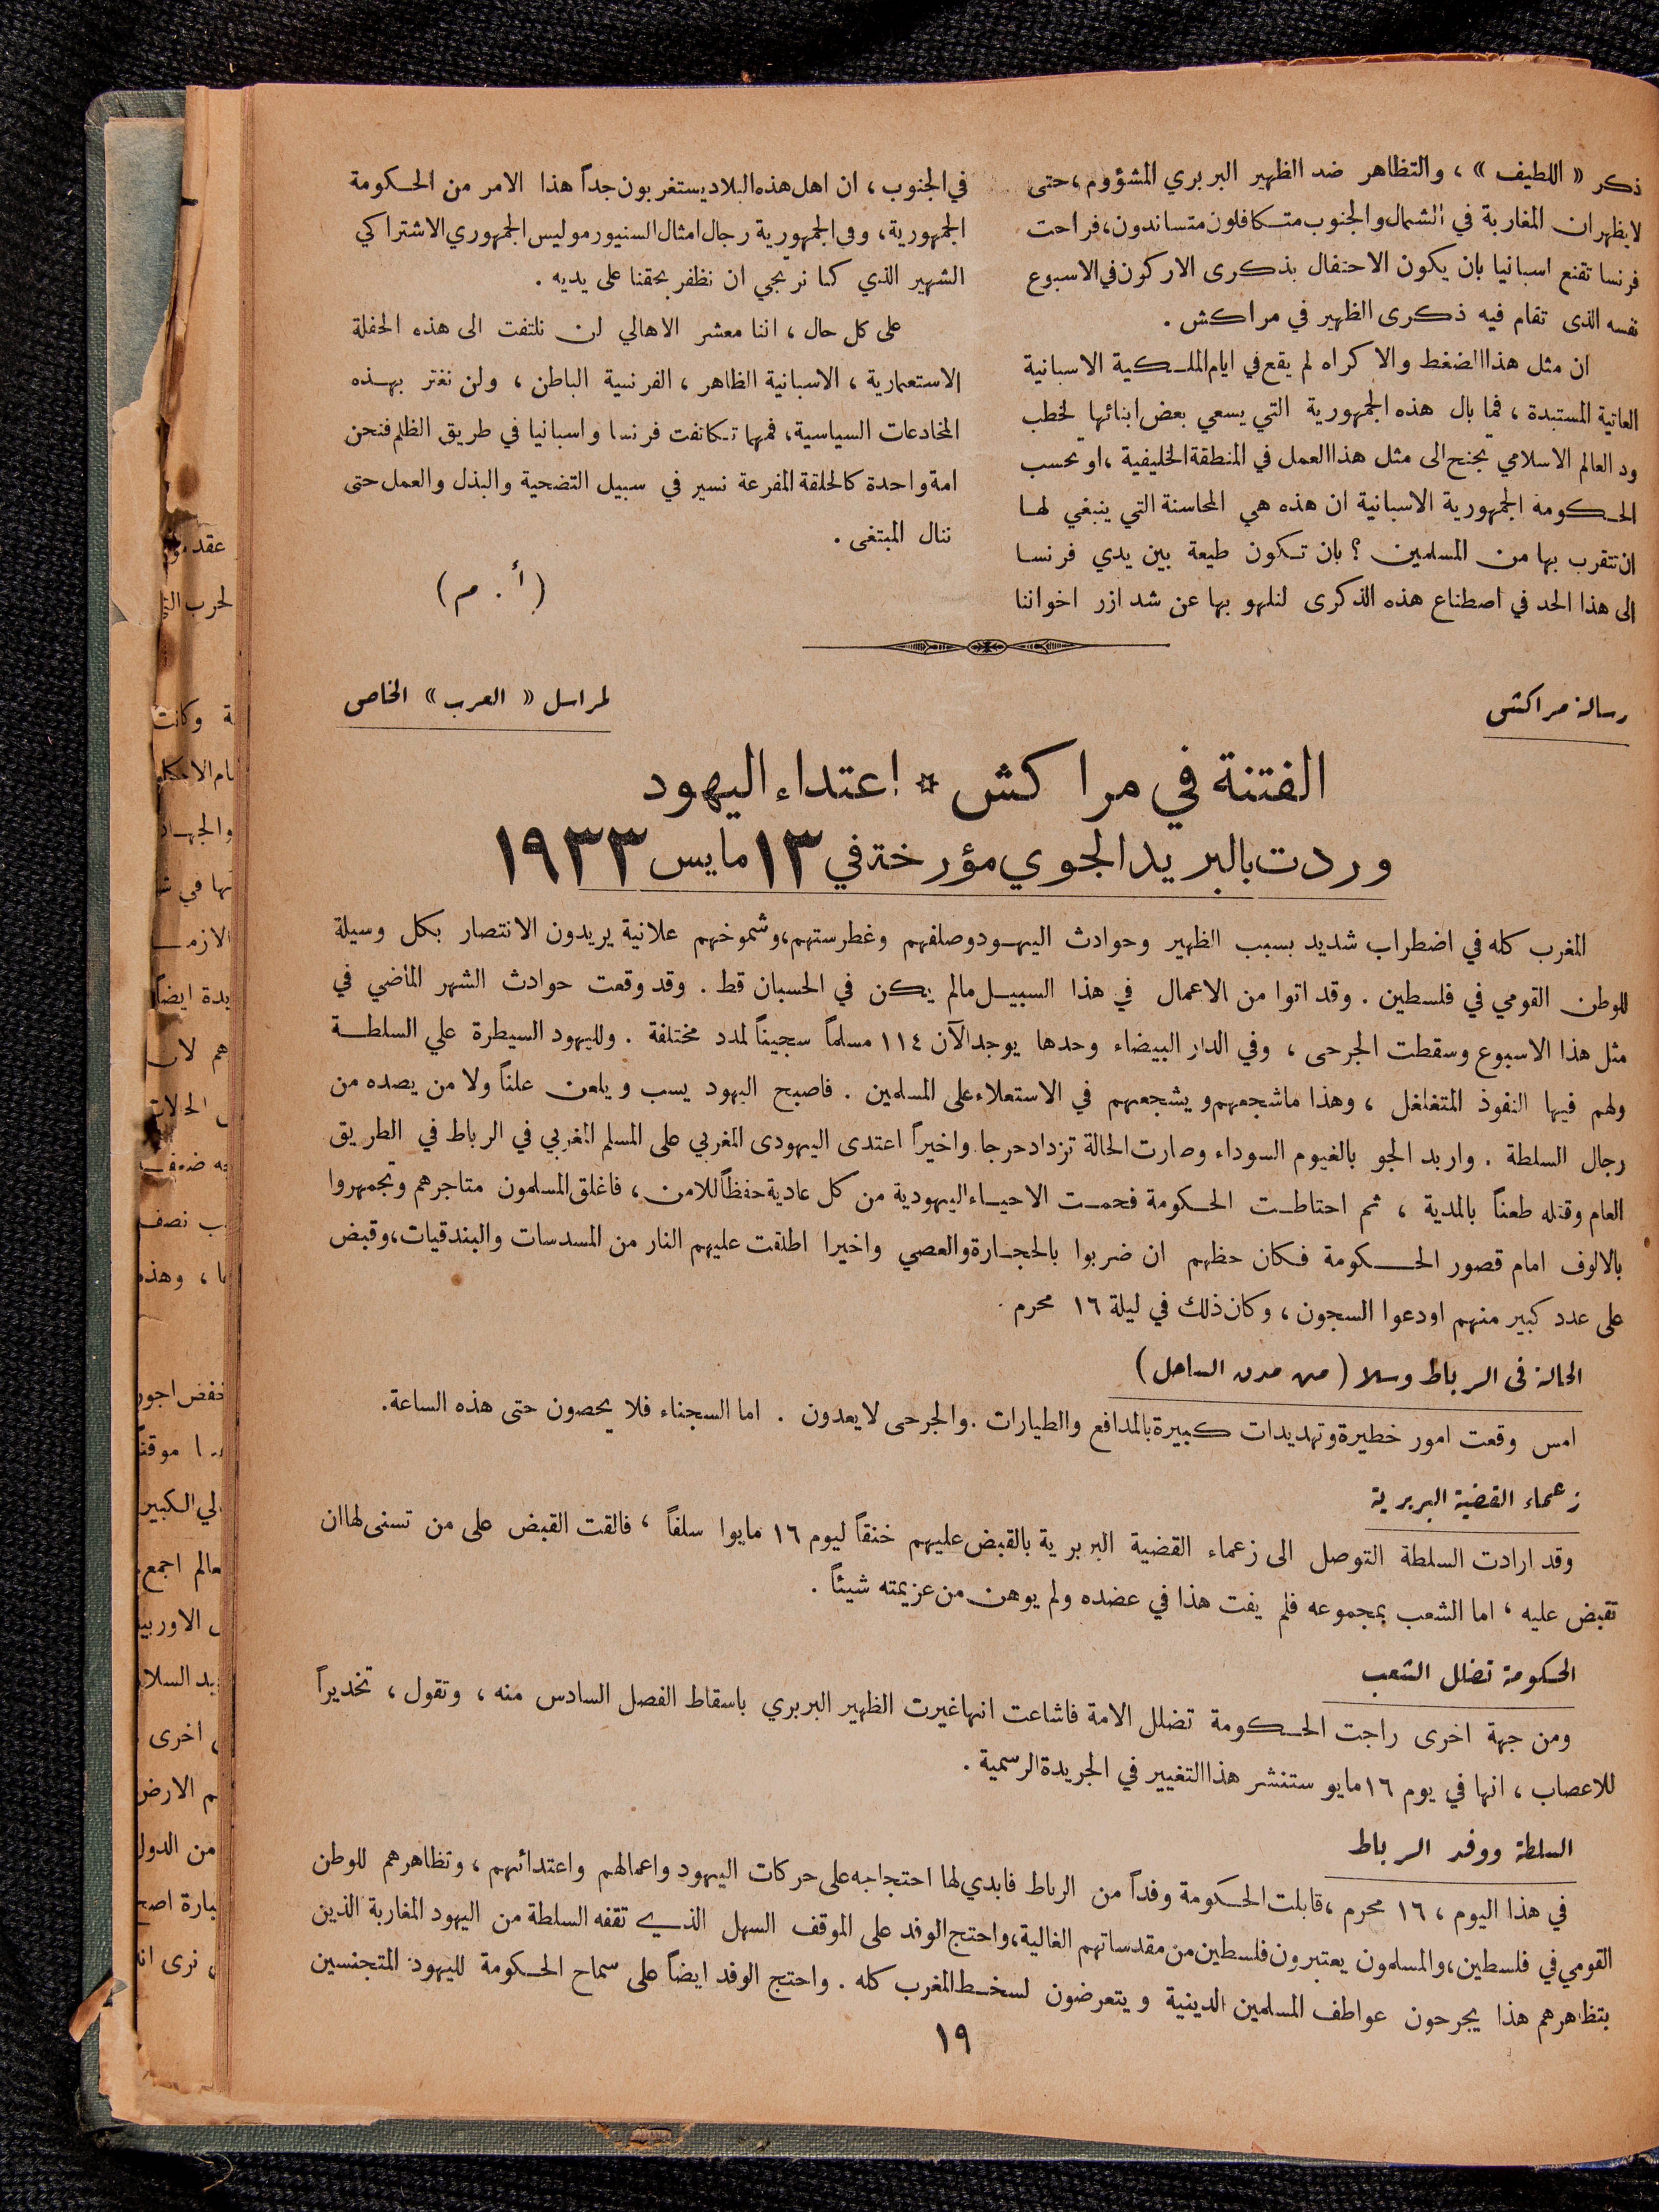 ذكر « اللطيف » ، والتظاهر ضد الظهير البربري المشؤوم ، حتى
لا يظهر ان المغاربة في الشمال والجنوب متكافلون متساندون ، فراحت
فرنسا تقنع اسبانيا بان يكون الاحتفال بذكرى الاركون في الاسبوع
نفسه الذى تقام فيه ذكرى الظهير في مراكش .
ان مثل هذا الضغط والاكراه لم يقع في ايام الملكية الاسبانية
العاتية المستبدة ، فما بال هذه الجمهورية التي يسعي بعض ابنائها لخطب
ود العالم الاسلامي تجنح الى مثل هذا العمل في المنطقة الخليفية ، او تحسب
الحكومة الجمهورية الاسبانية ان هذه هي المحاسنة التي ينبغي لها
ان تتقرب بها من المسلمين ؟ بان تكون طيعة بين يدي فرنسا
الى هذا الحد في اصطناع هذه الذكرى لنلهو بها عن شد ازر اخواننا
في الجنوب ، ان اهل هذه البلاد يستغربون جداً هذا الامر من الحكومة
الجمهورية ، وفي الجمهورية رجال امثال السنيور موليس الجمهوري الاشتراكي
الشهير الذي كنا نرتجي ان نظفر بحقنا على يديه .
على كل حال ، اننا معشر الاهالي لن نلتفت الى هذه الحفلة
الاستعمارية ، الاسبانية الظاهر ، الفرنسية الباطن ، ولن نغتر بهذه
المخادعات السياسية ، فمهما تكاتفت فرنسا واسبانيا في طريق الظلم فنحن
امة واحدة كالحلقة المفرعة نسير في سبيل التضحية والبذل والعمل حتى
ننال المبتغى .
( أ . م )
رسالة مراكش
لمراسل « العرب » الخاص
الفتنة في مراكش * اعتداء اليهود
وردت بالبريد الجوي مؤرخة في ١٣ مايس ١٩٣٣
المغرب كله في اضطراب شديد بسبب الظهير وحوادث اليهود وصلفهم وغطرستهم ، وشموخهم علانية يريدون الانتصار بكل وسيلة
للوطن القومي في فلسطين . وقد اتوا من الاعمال في هذا السبيل مالم يكن في الحسبان قط . وقد وقعت حوادث الشهر الماضي في
مثل هذا الاسبوع وسقطت الجرحى ، وفي الدار البيضاء وحدها يوجد الآن ١١٤ مسلماً سجيناً لمدد مختلفة . ولليهود السيطرة علي السلطة
ولهم فيها النفوذ المتغلغل ، وهذا ماشجعهم ويشجعهم في الاستعلاء على المسلمين . فاصبح اليهود يسب ويلعن علناً ولا من يصده من
رجال السلطة . واربد الجو بالغيوم السوداء وصارت الحالة تزداد حرجا واخيراً اعتدى اليهودى المغربي على المسلم المغربي في الرباط في الطريق
العام وقتله طعناً بالمدية ، ثم احتاطت الحكومة فحمت الاحياء اليهودية من كل عادية حفظاً للامن ، فاغلق المسلمون متاجرهم وتجمهروا
بالالوف امام قصور الحكومة فكان حظهم ان ضربوا بالحجارة والعصي واخيرا اطلقت عليهم النار من المسدسات والبندقيات ، وقبض
على عدد كبير منهم اودعوا السجون ، وكان ذلك في ليلة ١٦ محرم .
الحالة في الرباط وسلا ( من مدن الساحل )
امس وقعت امور خطيرة وتهديدات كبيرة بالمدافع والطيارات . والجرحى لا يعدون . اما السجناء فلا يحصون حتى هذه الساعة .
زعماء القضية البربرية
وقد ارادت السلطة التوصل الى زعماء القضية البربرية بالقبض عليهم خنقاً ليوم ١٦ مايوا سلفاً ، فالقت القبض على من تسنى لها ان
تقبض عليه ، اما الشعب بمجموعه فلم يفت هذا في عضده ولم يوهن من عزيمته شيئاً .
الحكومة تضلل الشعب
ومن جهة اخرى راجت الحكومة تضلل الامة فاشاعت انها غيرت الظهير البربري باسقاط الفصل السادس منه ، وتقول ، تخديراً
للاعصاب ، انها في يوم ١٦ مايو ستنشر هذا التغيير في الجريدة الرسمية .
السلطة ووفد الرباط
في هذا اليوم ، ١٦ محرم ، قابلت الحكومة وفداً من الرباط فابدي لها احتجاجه على حركات اليهود واعمالهم واعتدائهم ، وتظاهرهم للوطن
القومي في فلسطين ، والمسلمون يعتبرون فلسطين من مقدساتهم الغالية ، واحتج الوفد على الموقف السهل الذي تقفه السلطة من اليهود المغاربة الذين
بتظاهرهم هذا يجرحون عواطف المسلمين الدينية ويتعرضون لسخط المغرب كله . واحتج الوفد ايضاً على سماح الحكومة لليهود المتجنسين
١٩